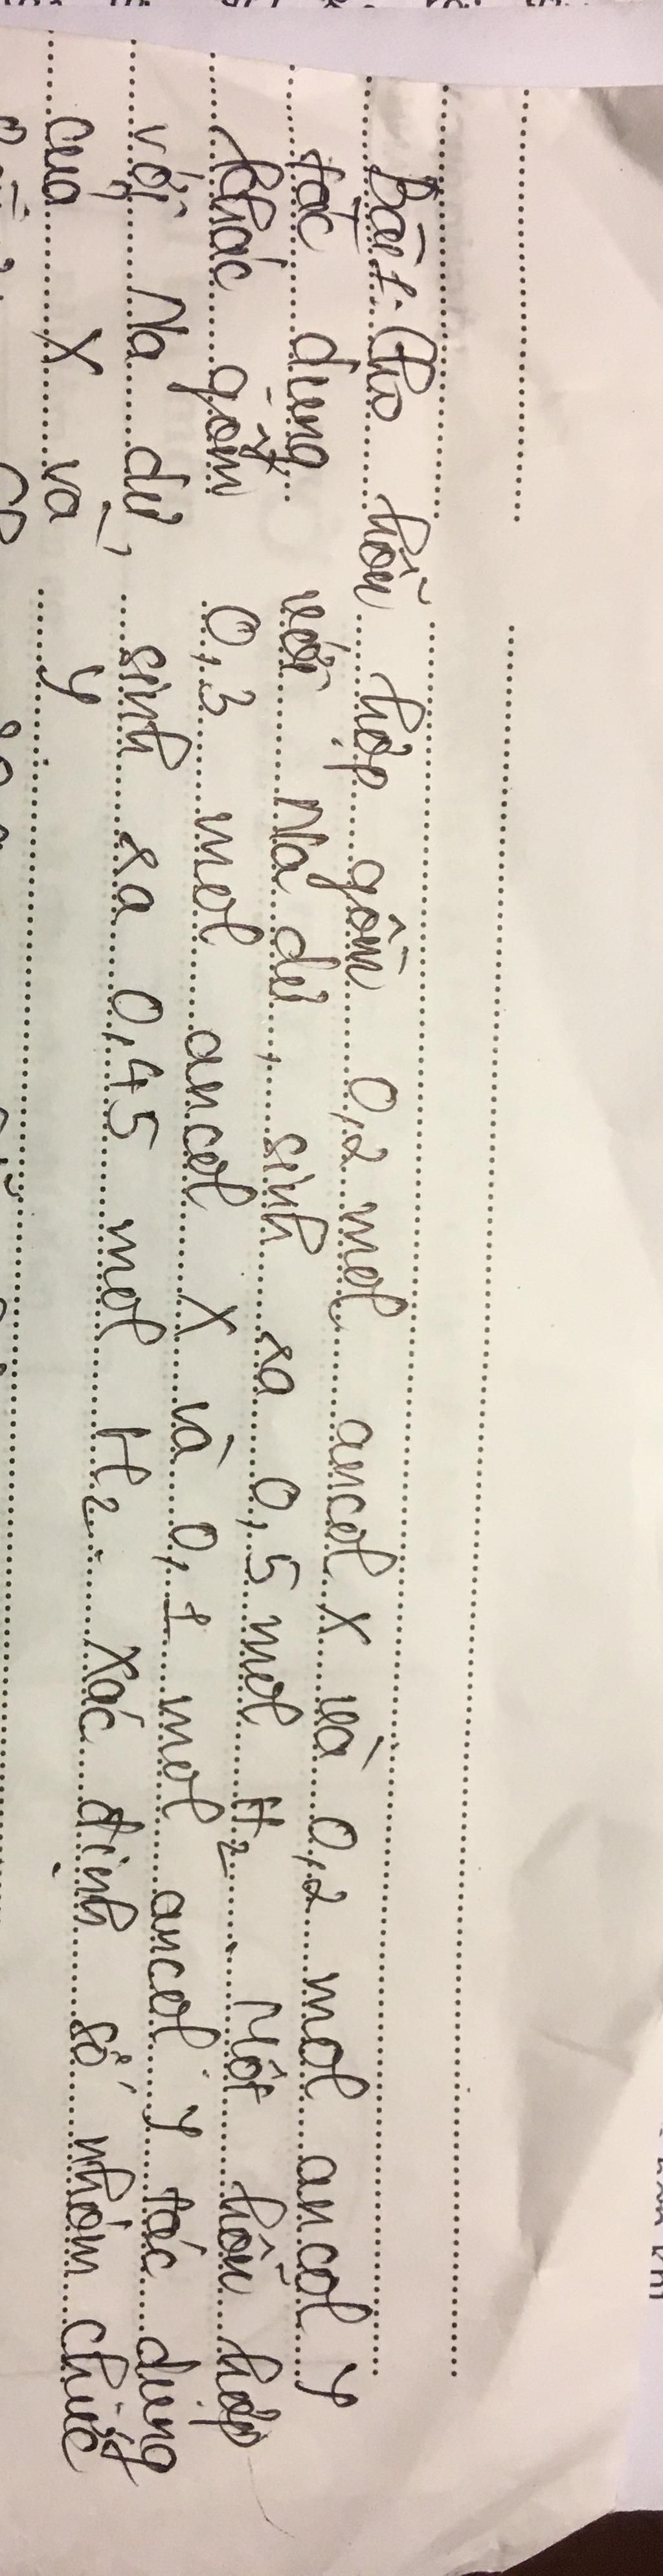 Bài 1. Cho hỗn hợp gồm 0,2 mol ancol X và 0,2 mol ancol Y
tác dụng với Na dư, sinh ra 0,5 mol H2. Một hỗn hợp
khác gồm 0,3 mol ancol X và 0,1 mol ancol Y tác dụng
với Na dư, sinh ra 0,45 mol H2. Xác định số nhóm chức
của X và Y